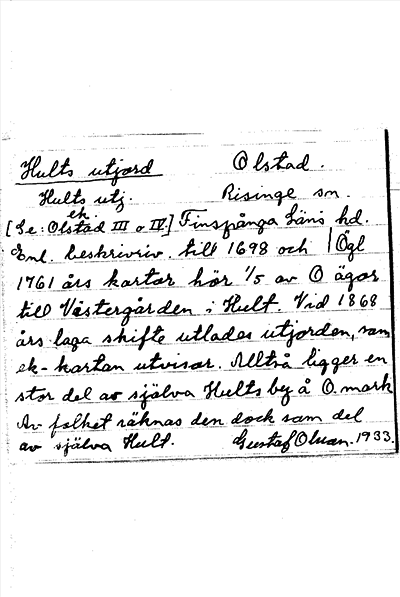 Hults utjord Olstad.
Hults utj. Risinge sn.
ek.
[Se: Olstad III o IV.] Finspånga läns hd.
Enl. beskrivniv. till 1698 och Ögl
1761 års kartor hör 1/5 av O ägor
till Västergården i Hult. Vid 1868
års laga skifte utlades utjorden, som
ek-kartan utvisar. Alltså ligger en
stor del av själva Hults by å O. mark
Av folket räknas den dock som del
av själva Hult. Gustaf Olson. 1933.